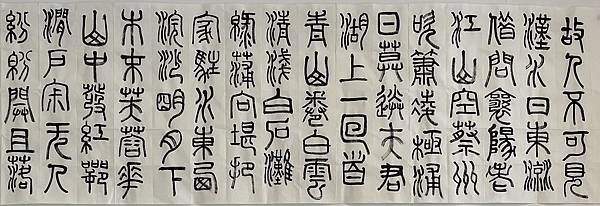 故人不可見
漢水日東流
借問襄陽老
江山空蔡州
吹簫凌極浦
日莫送夫君
湖上一回首
青山卷白雲
清淺白石灘
綠蒲向堪把
家駐水東西
浣沙明月下
木末芙蓉華
山中發紅萼
澗戶寂无人
紛紛開且落